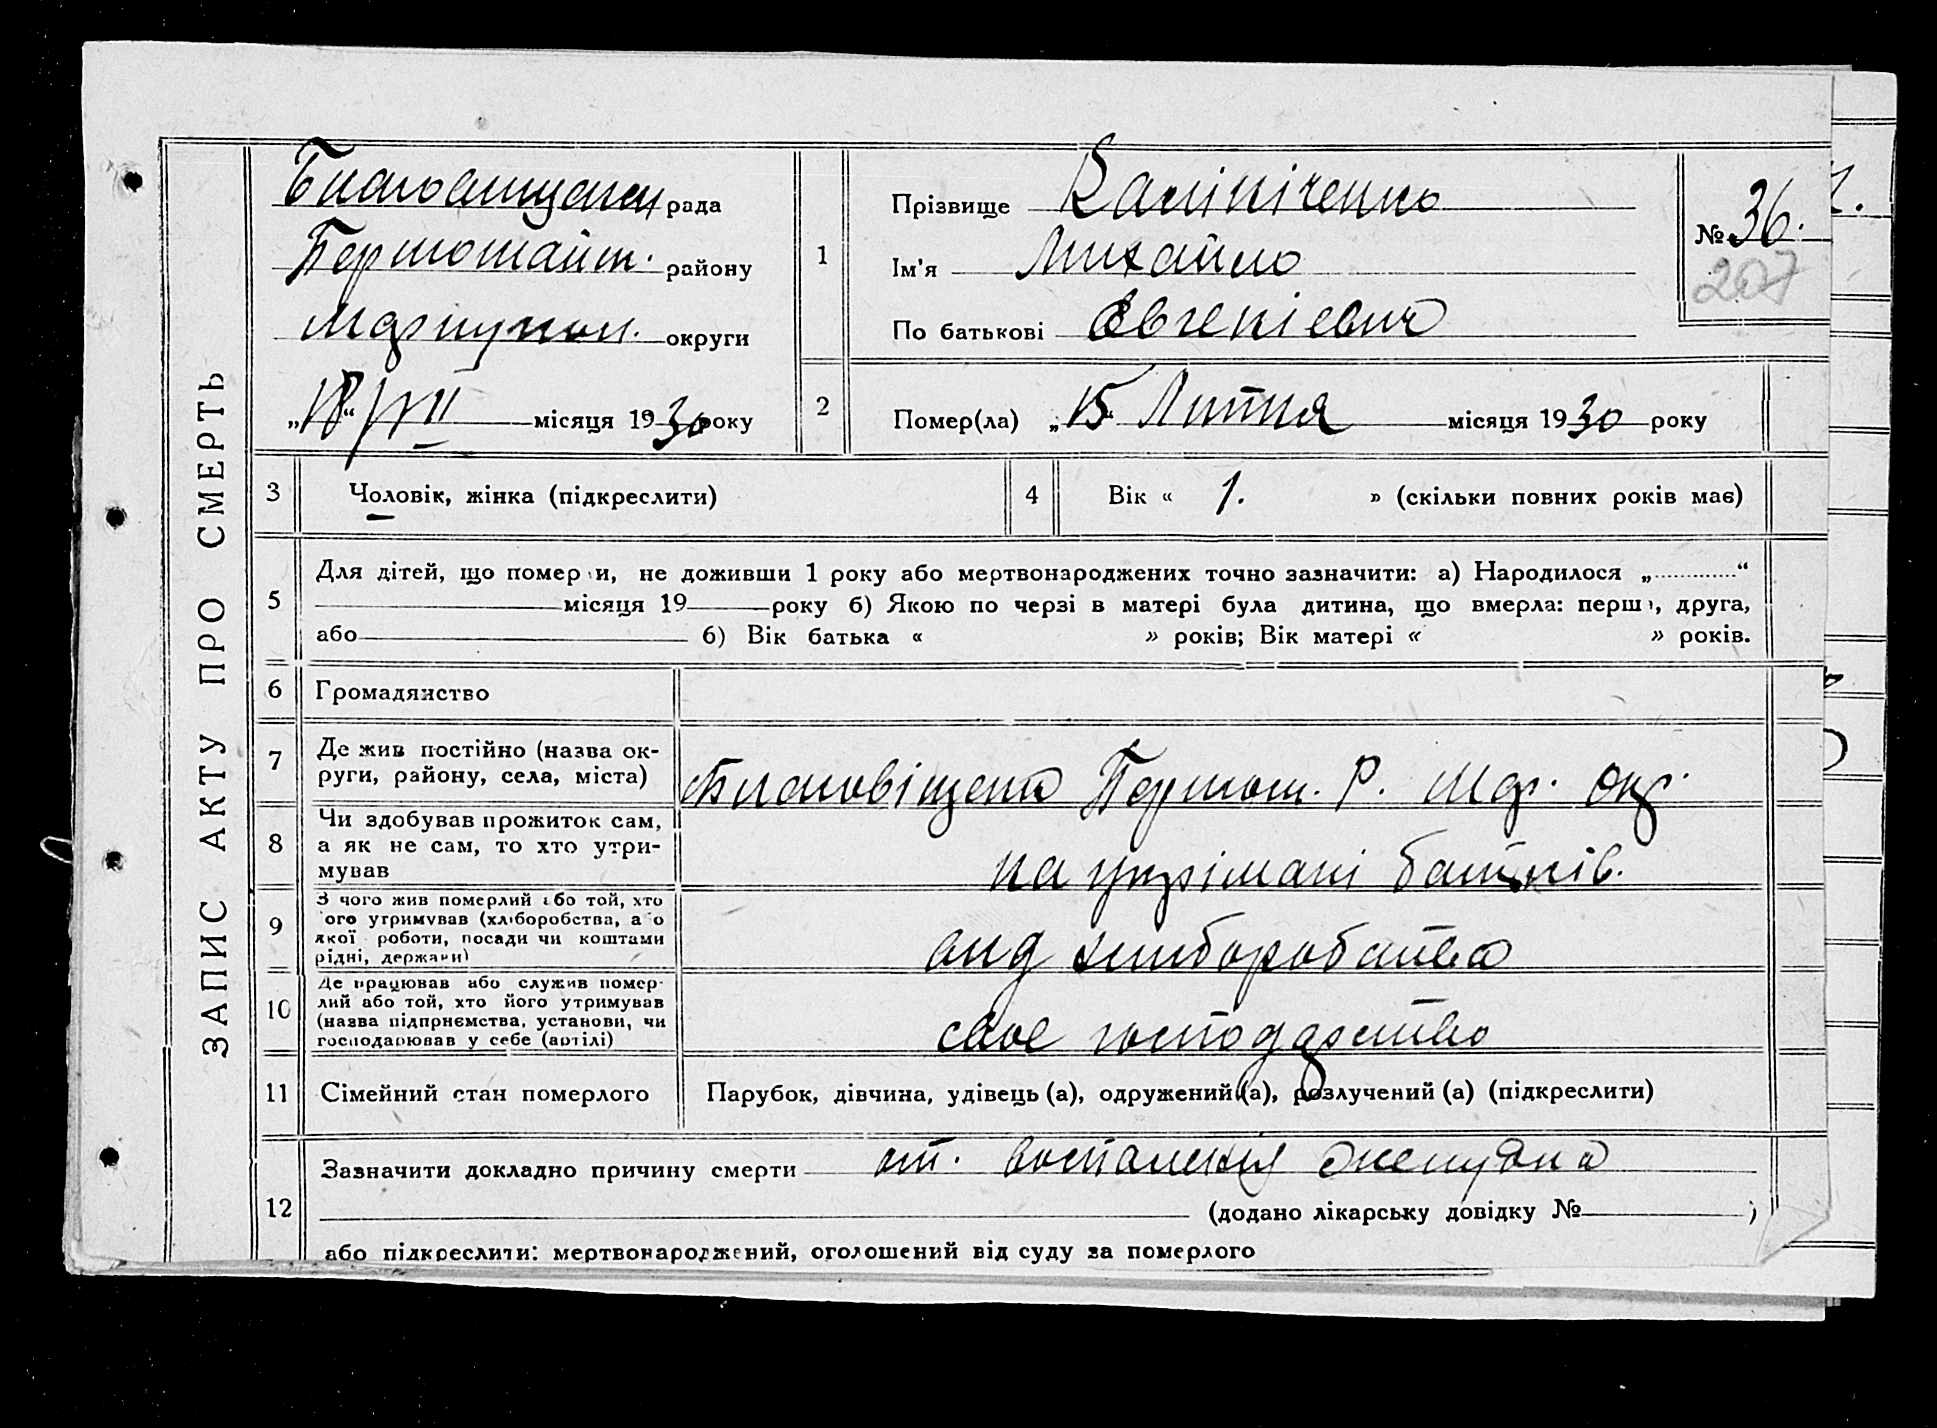 ЗАПИС АКТУ ПРО СМЕРТЬ
рада
району
округи
„18“ VII місяця 1930 року
1
Прізвище Калініченко
Ім'я Михайло
По батькові Євгенієвич
№ 36.
207
2
Помер(ла) „15“ Липня місяця 1930 року
3 Чоловік, жінка (підкреслити)
4 Вік « 1. » (скільки повних років має)
5
Для дітей, що помер и, не доживши 1 року або мертвонароджених точно зазначити: а) Народилося „ “
місяця 19 року б) Якою по черзі в матері була дитина, що вмерла: перш , друга,
або б) Вік батька « » років; Вік матері « » років.
6 Громадянство
7
Де жив постійно (назва ок-
руги, району, села, міста)
Благовіщенка Р. Мар. окр.
8
Чи здобував прожиток сам,
а як не сам, то хто утри-
мував
на утрімані батьків.
9
З чого жив померлий або той, хто
ого утримував (хліборобства, а о
якої роботи, посади чи коштами
рідні, держави)
від хліборобства
10
Де працював або служив помер-
лий або той, хто його утримував
(назва підприємства, установи, чи
господарював у себе (артілі)
своє господарство
11 Сімейний стан померлого
Парубок, дівчина, удівець (а), одружений (а), розлучений (а) (підкреслити)
12
Зазначити докладно причину смерти от. воспаления желудка
(додано лікарську довідку № )
або підкреслити: мертвонароджений, оголошений від суду за померлого